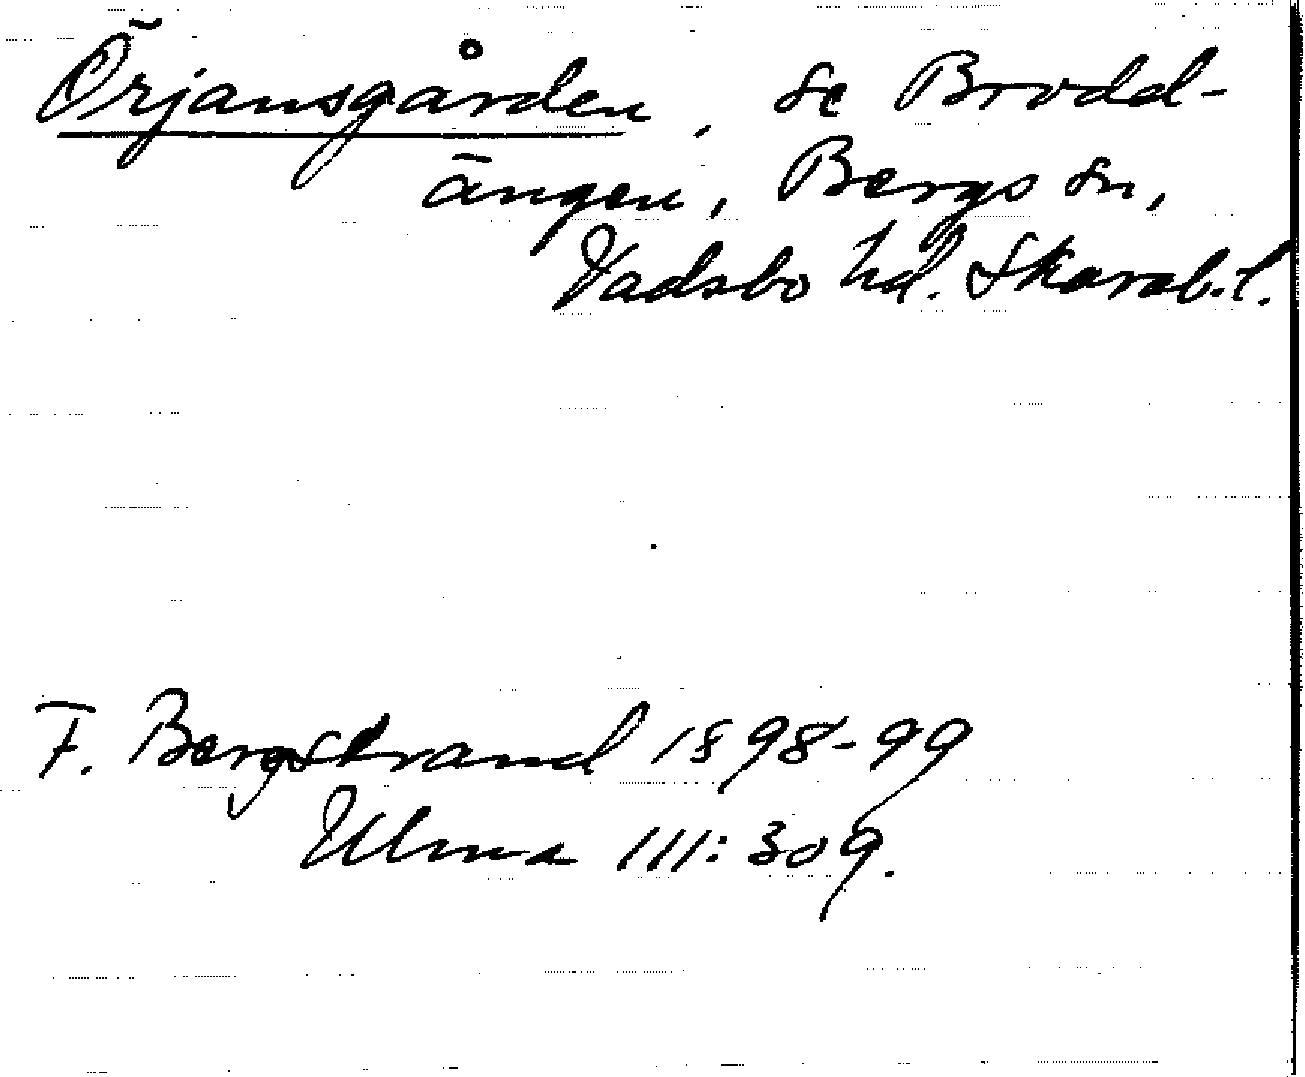 Örjansgården, se Brodd-
ängen, Bergs sn,
Vadsbo hd. Skarab.l.
F. Bergstrand 1898-99
Ulma 111:309.